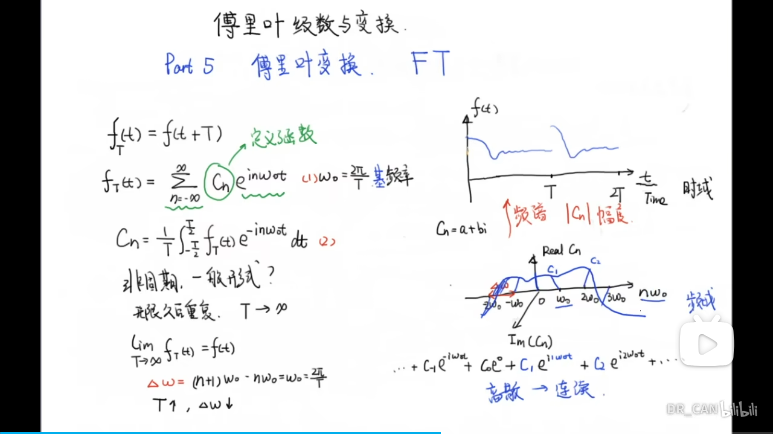 傅里叶级数与变换.
Part 5 傅里叶变换. FT
f_T(t) = f(t+T)
定义了函数
f_T(t) = ∑_{n=-∞}^{∞} C_n e^{inω₀t} (1) ω₀ = 2π/T 基频率
C_n = 1/T ∫_{-T/2}^{T/2} f_T(t) e^{-inω₀t} dt (2)
非周期, 一般形式?
无限久后重复. T → ∞
lim_{T→∞} f_T(t) = f(t)
Δω = (n+1)ω₀ - nω₀ = ω₀ = 2π/T
T↑, Δω↓
f(t)
T 2T t/Time 时域
频谱 |C_n| 幅度.
C_n = a+bi
Real C_n
C₁ C₂
-2ω₀ -ω₀ 0 ω₀ 2ω₀ 3ω₀ nω₀ 频域
Im(C_n)
··· + C₋₁e^{-iω₀t} + C₀e⁰ + C₁e^{i1ω₀t} + C₂ e^{i2ω₀t} + ···
离散 → 连续.
DR_CAN bilibili